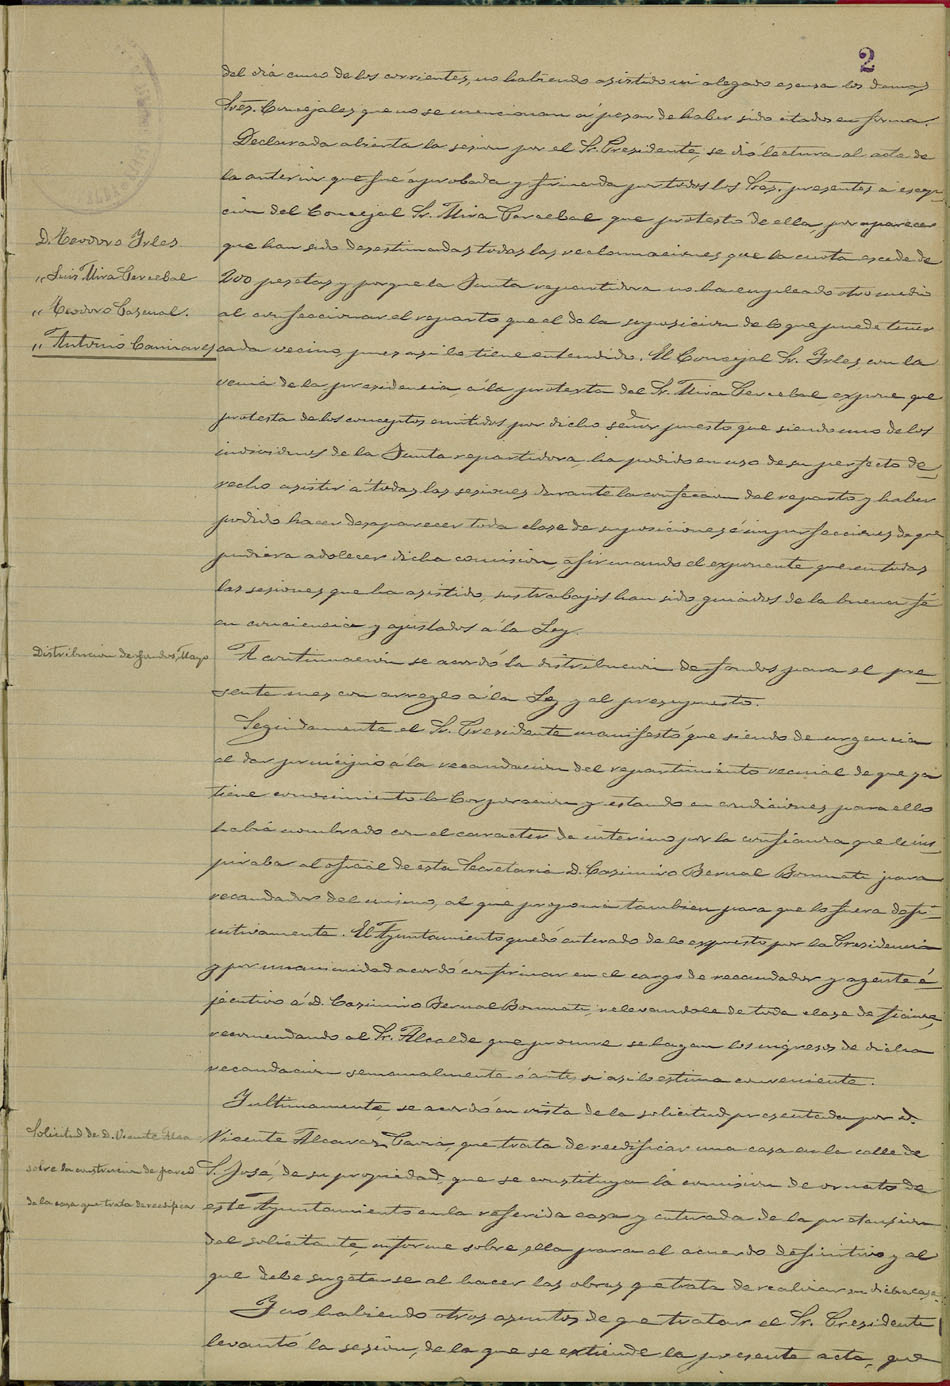 2
del dia cinco de los corrientes, no habiendo asistido ni alegado escusa los demas
Sres. Concejales que no se mencionan á pesar de haber sido citados en forma.
Declarada abierta la sesion por el Sr. Presidente, se dió lectura al acta de
la anterior que fué aprobada y firmada por todos los Sres. presentes a escep-
cion del Concejal Sr. Mira Percebal que protestó de ella por aparecer
D. Teodoro Yrles
que han sido desestimadas todas las reclamaciones que la cuota escede de
" Luis Mira Percebal
200 pesetas y porque la Junta repartidora no ha empleado otro medio
" Teodoro Pascual.
al confeccionar el reparto que el de la suposicion de lo que puede tener
" Antonio Cañizares
cada vecino pues asi lo tiene entendido. El Concejal Sr. Yrles, con la
venia de la presidencia, á la protesta del Sr. Mira Percebal expone que
protesta de los conceptos emitidos por dicho señor puesto que siendo uno de los
individuos de la Junta repartidora, ha podido en uso de su perfecto de-
recho asistir á todas las sesiones durante la confeccion del reparto y haber
podido hacer desaparecer toda clase de suposiciones é imperfecciones de que
pudiera adolecer dicha comision, afirmando el exponente que en todas
las sesiones que ha asistido, sus trabajos han sido guiados de la buena fé
en conciencia y ajustados á la Ley.
Distribucion de fondos, Mayo
A continuacion se acordó la distribucion de fondos para el pre-
sente mes con arreglo á la Ley y al presupuesto.
Seguidamente el Sr. Presidente manifestó que siendo de urgencia
el dar principio á la recaudacion del repartimiento vecinal de que ya
tiene conocimiento la Corporacion y estando en condiciones para ello
habia nombrado con el caracter de interino por la confianza que le ins-
piraba al oficial de esta Secretaria D. Casimiro Bernal Bonmati para
recaudador del mismo, al que proponia tambien para que lo fuera defi-
nitivamente. El Ayuntamiento quedó enterado de lo expuesto por la Presidencia
y por unanimidad acordó confirmar en el cargo de recaudador y agente é-
jecutivo á D. Casimiro Bernal Bonmati, relevandole de toda clase de fianza,
recomendando al Sr. Alcalde que procure se hagan los ingresos de dicha
recaudacion semanalmente ó antes si asi lo estima conveniente.
Y ultimamente se acordó en vista de la solicitud presentada por D.
Solicitud de D. Vicente
Vicente Alcaraz que trata de reedificar una casa en la calle de
sobre la construccion de pared
S. José, de su propiedad, que se constituya la comision de ornato de
de la casa que trata de reedificar
este Ayuntamiento en la referida casa y enterada de la pretension
del solicitante, informe sobre ella para el acuerdo definitivo y al
que debe sugetarse al hacer las obras que trata de realizar en dicha casa.
Y no habiendo otros asuntos de que tratar el Sr. Presidente
levantó la sesion, de la que se extiende la presente acta, que